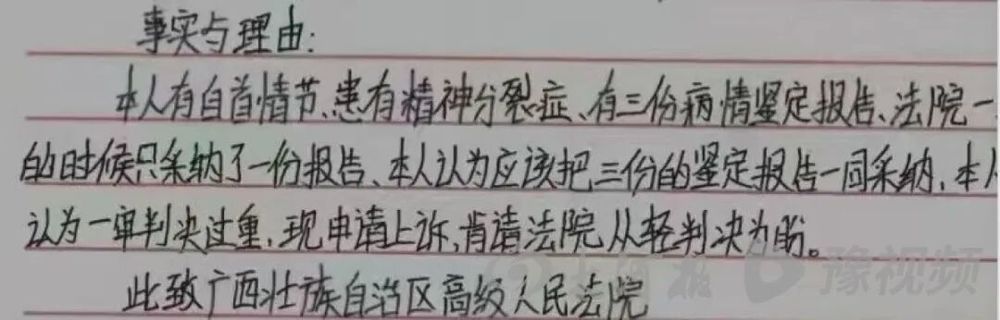 事实与理由:
本人有自首情节、患有精神分裂症、有三份病情鉴定报告、法院一
的时候只采纳了一份报告、本人认为应该把三份的鉴定报告一同采纳,本人
认为一审判决过重,现申请上诉,肯请法院从轻判决为盼。
此致广西壮族自治区高级人民法院
豫视频